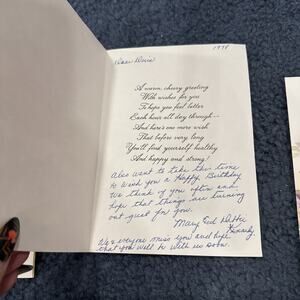 1998
Dear Doris
A warm, cheery greeting
With wishes for you
To hope you feel better
Each hour all day through--
And here's one more wish
That before very long
You'll find yourself healthy
And happy and strong!
Also want to take this time
to wish you a Happy Birthday
We think of you often and
hope that things are turning
out great for you.
Mary
We & everyone miss you and hope
that you will be with us soon.